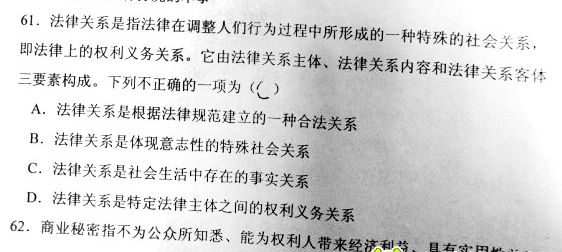 61. 法律关系是指法律在调整人们行为过程中所形成的一种特殊的社会关系,
即法律上的权利义务关系。它由法律关系主体、法律关系内容和法律关系客体
三要素构成。下列不正确的一项为(C)
A. 法律关系是根据法律规范建立的一种合法关系
B. 法律关系是体现意志性的特殊社会关系
C. 法律关系是社会生活中存在的事实关系
D. 法律关系是特定法律主体之间的权利义务关系
62. 商业秘密指不为公众所知悉、能为权利人带来经济利益、具有实用性